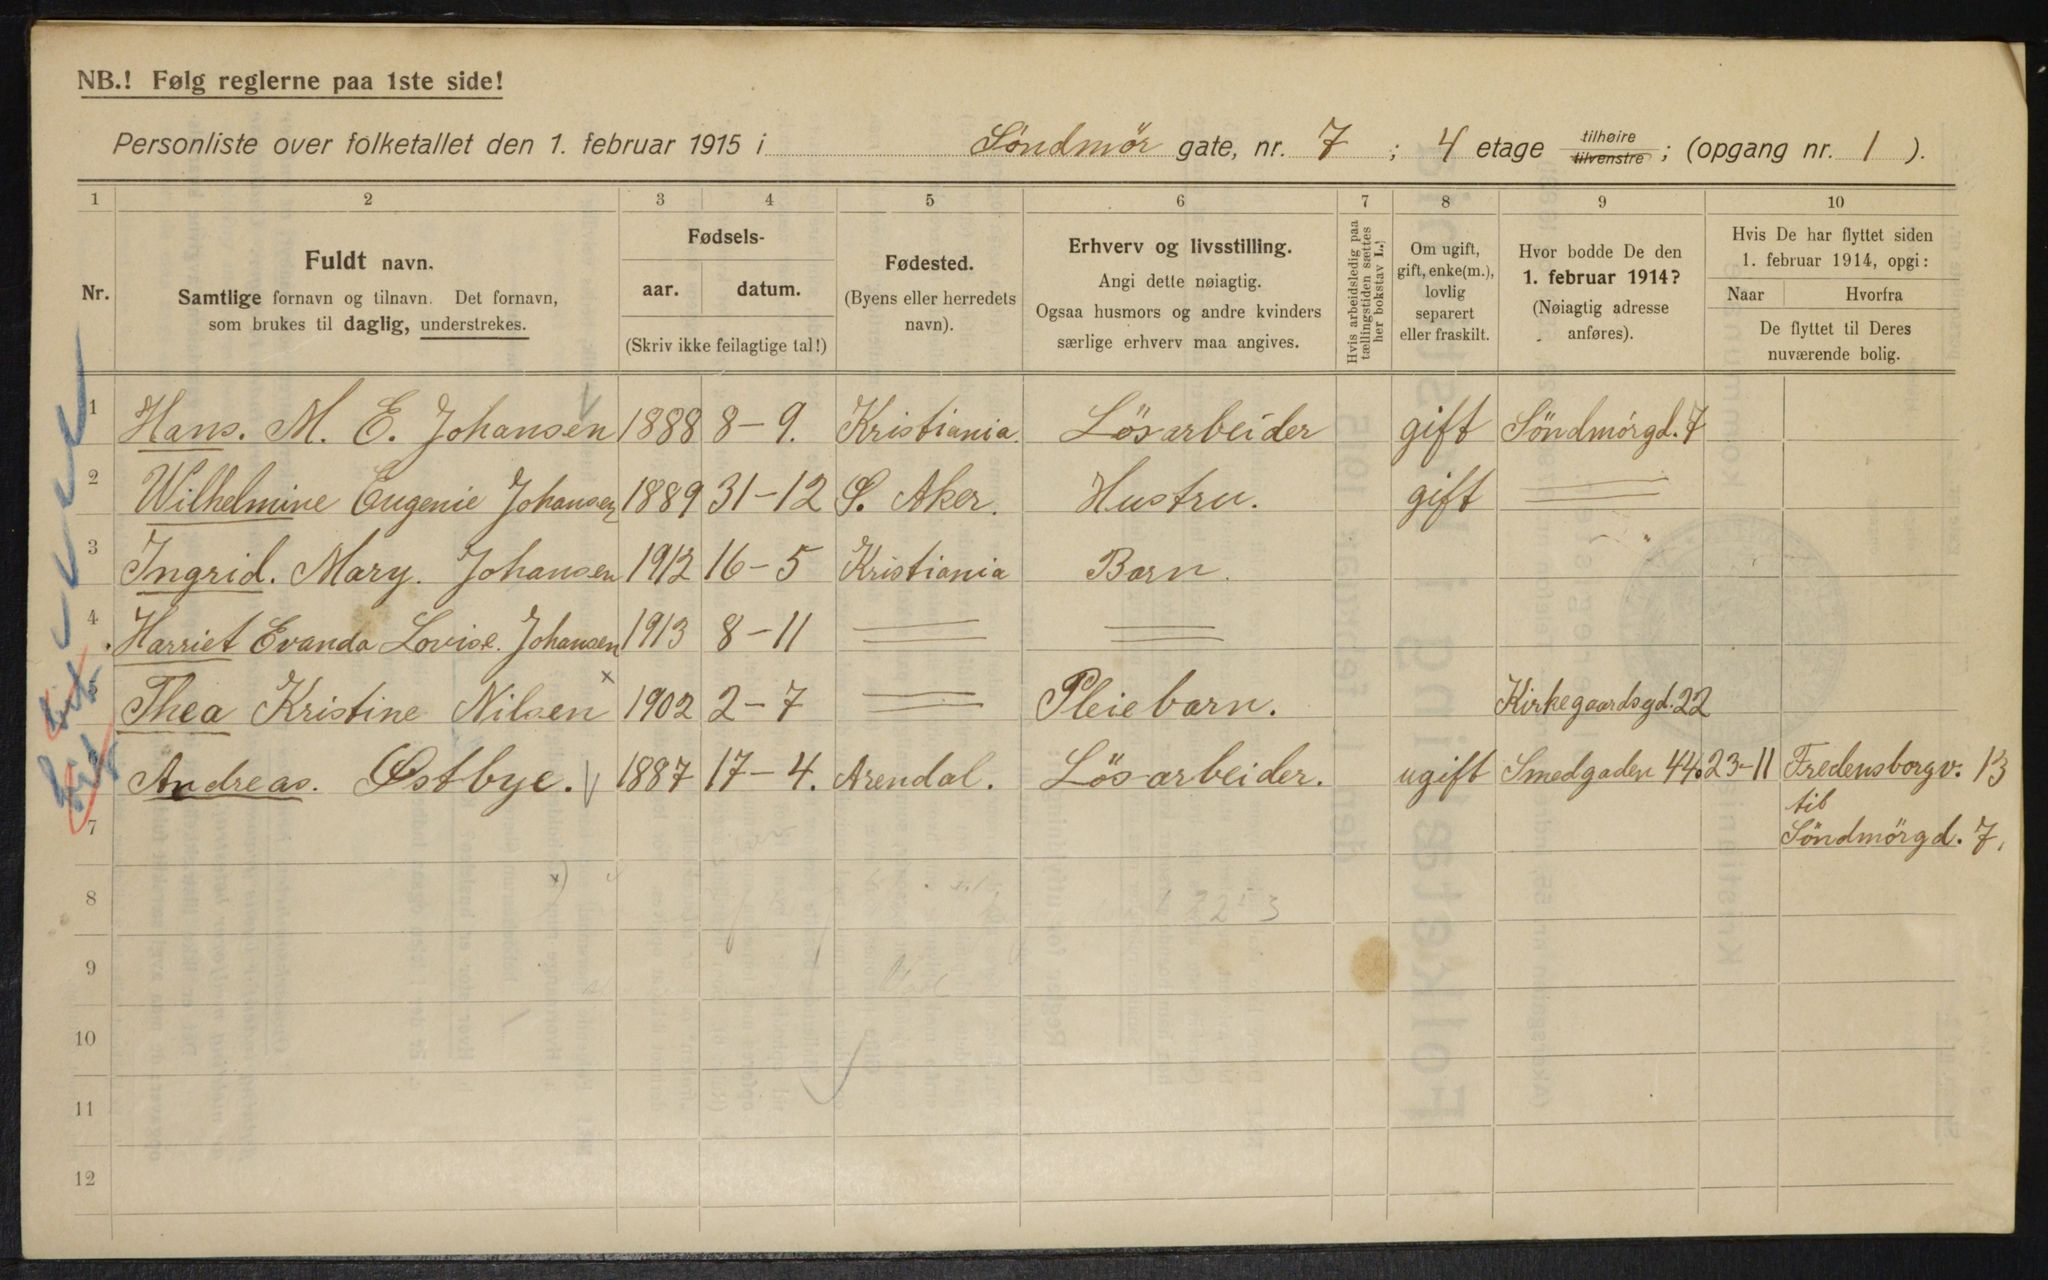 NB.! Følg reglerne paa 1ste side!
Personliste over folketallet den 1. februar 1915 i Söndmör gate, nr. 7 ; 4 etage tilhøire tilvenstre ; (opgang nr. 1 ).
1 2 3 4 5 6 7 8 9 10
Nr.
Fuldt navn.
Samtlige fornavn og tilnavn. Det fornavn,
som brukes til daglig, understrekes.
Fødsels-
aar. datum.
(Skriv ikke feilagtige tal!)
Fødested.
(Byens eller herredets
navn).
Erhverv og livsstilling.
Angi dette nøiagtig.
Ogsaa husmors og andre kvinders
særlige erhverv maa angives.
Hvis arbeidsledig paa
tællingstiden sættes
her bokstav L.)
Om ugift,
gift, enke(m.),
lovlig
separert
eller fraskilt.
Hvor bodde De den
1. februar 1914?
(Nøiagtig adresse
anføres).
Hvis De har flyttet siden
1. februar 1914, opgi:
Naar Hvorfra
De flyttet til Deres
nuværende bolig.
1 Hans. M. E. Johansen 1888 8-9. Kristiania. Lösarbeider gift Söndmörgd. 7
2 Wilhelmine Eugenie Johansen 1889 31-12 S. Aker. Hustru. gift
3 Ingrid. Mary. Johansen 1912 16-5 Kristiania Barn. "
4 Harriet Evanda Lovise. Johansen 1913 8-11
5 Thea Kristine Nilsen 1902 2-7 Pleiebarn. Kirkegaardsgd. 22
6 Andreas. Østbye. 1887 17-4. Arendal. Lösarbeider. ugift Smedgaden 44. 23-11 Fredensborgv. 13
til
7 Söndmörgd. 7,
8
9
10
11
12